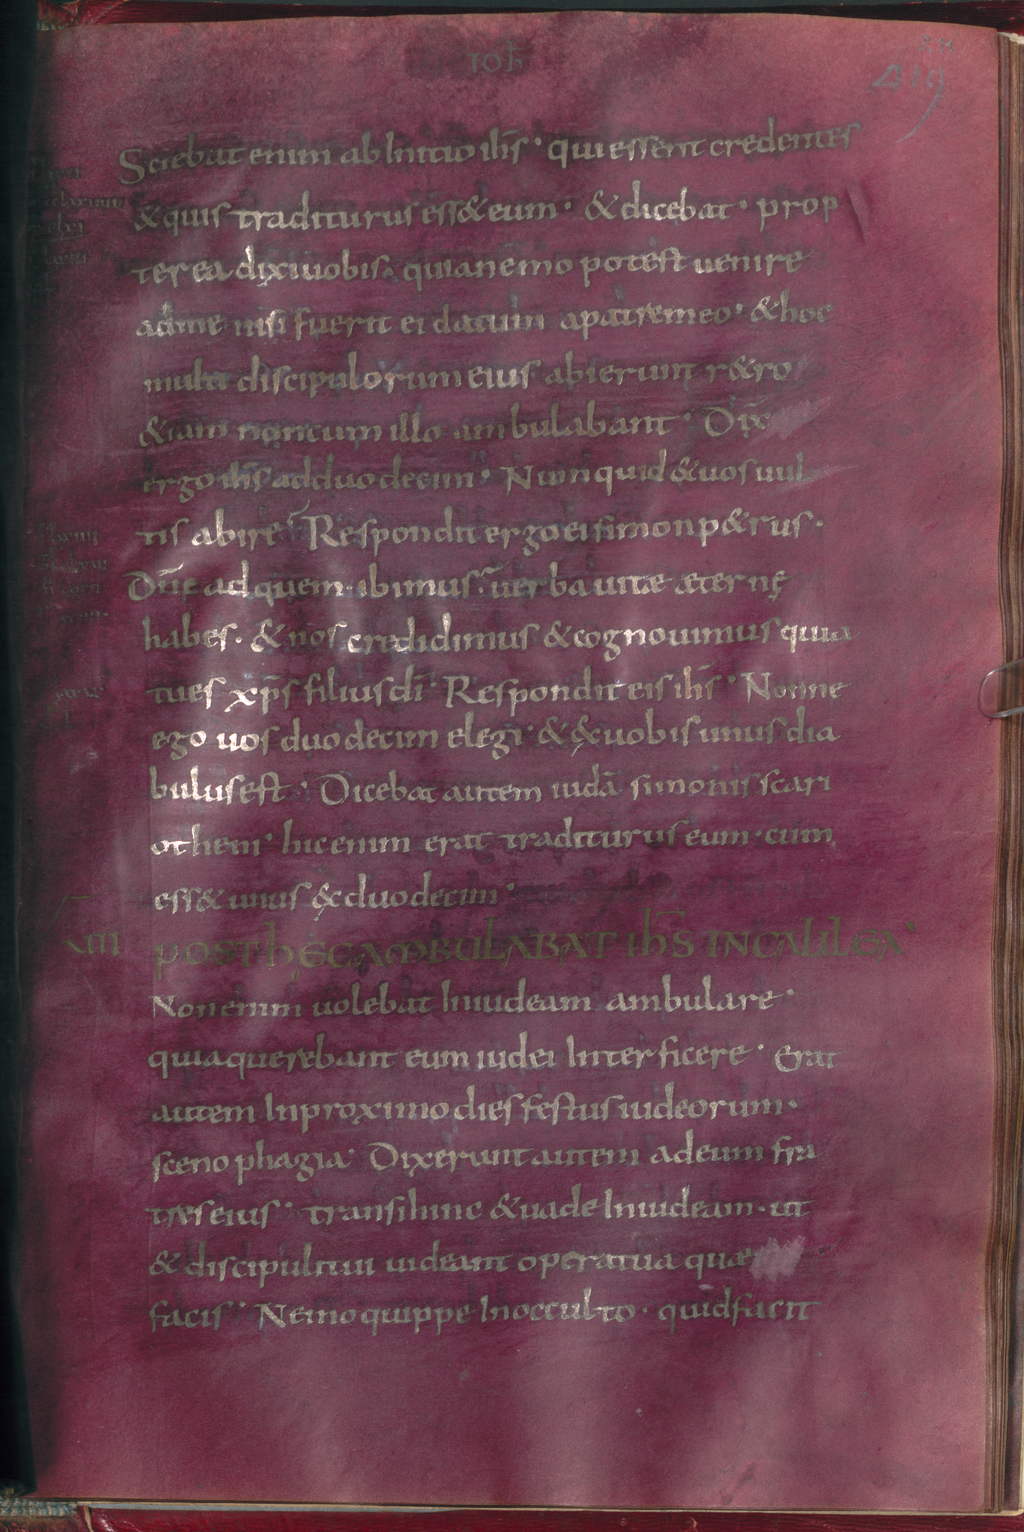 IOħ
Sciebat enim ab Initio ih̅s · qui essent credentes
& quis traditurus ess& eum · & dicebat · prop
terea dixi uobis · quia nemo potest uenire
ad me nisi fuerit ei datum a patre meo · & hoc
multi discipulorum eius abierunt r&ro
&iam non cum illo ambulabant · Dix̅
ergo ih̅s ad duodecim · Numquid & uos uul
tis abire · Respondit ergo ei simon p&rus ·
Dn̅e ad quem ibimus · uerba uitæ æternę
habes · & nos credidimus & cognouimus quia
tu es xp̅s filius di̅ · Respondit eis ih̅s · Nonne
ego uos duodecim elegi · & &uobis unus dia
bulus est · Dicebat autem iudā simonis scari
othem · hic enim erat traditurus eum · cum
ess& unus &duodecim ·
XIII POST hĘC AMBULABAT IhS̅ IN GALILEA ·
Non enim uolebat In iudeam ambulare ·
quia querebant eum iudei Interficere · Erat
autem In proximo dies festus iudeorum ·
scenophagia · Dixerunt autem ad eum fra
tres eius · transi hinc & uade In iudeam · ut
& discipuli tui uideant opera tua quæ
facis · Nemo quippe In occulto · quid facit